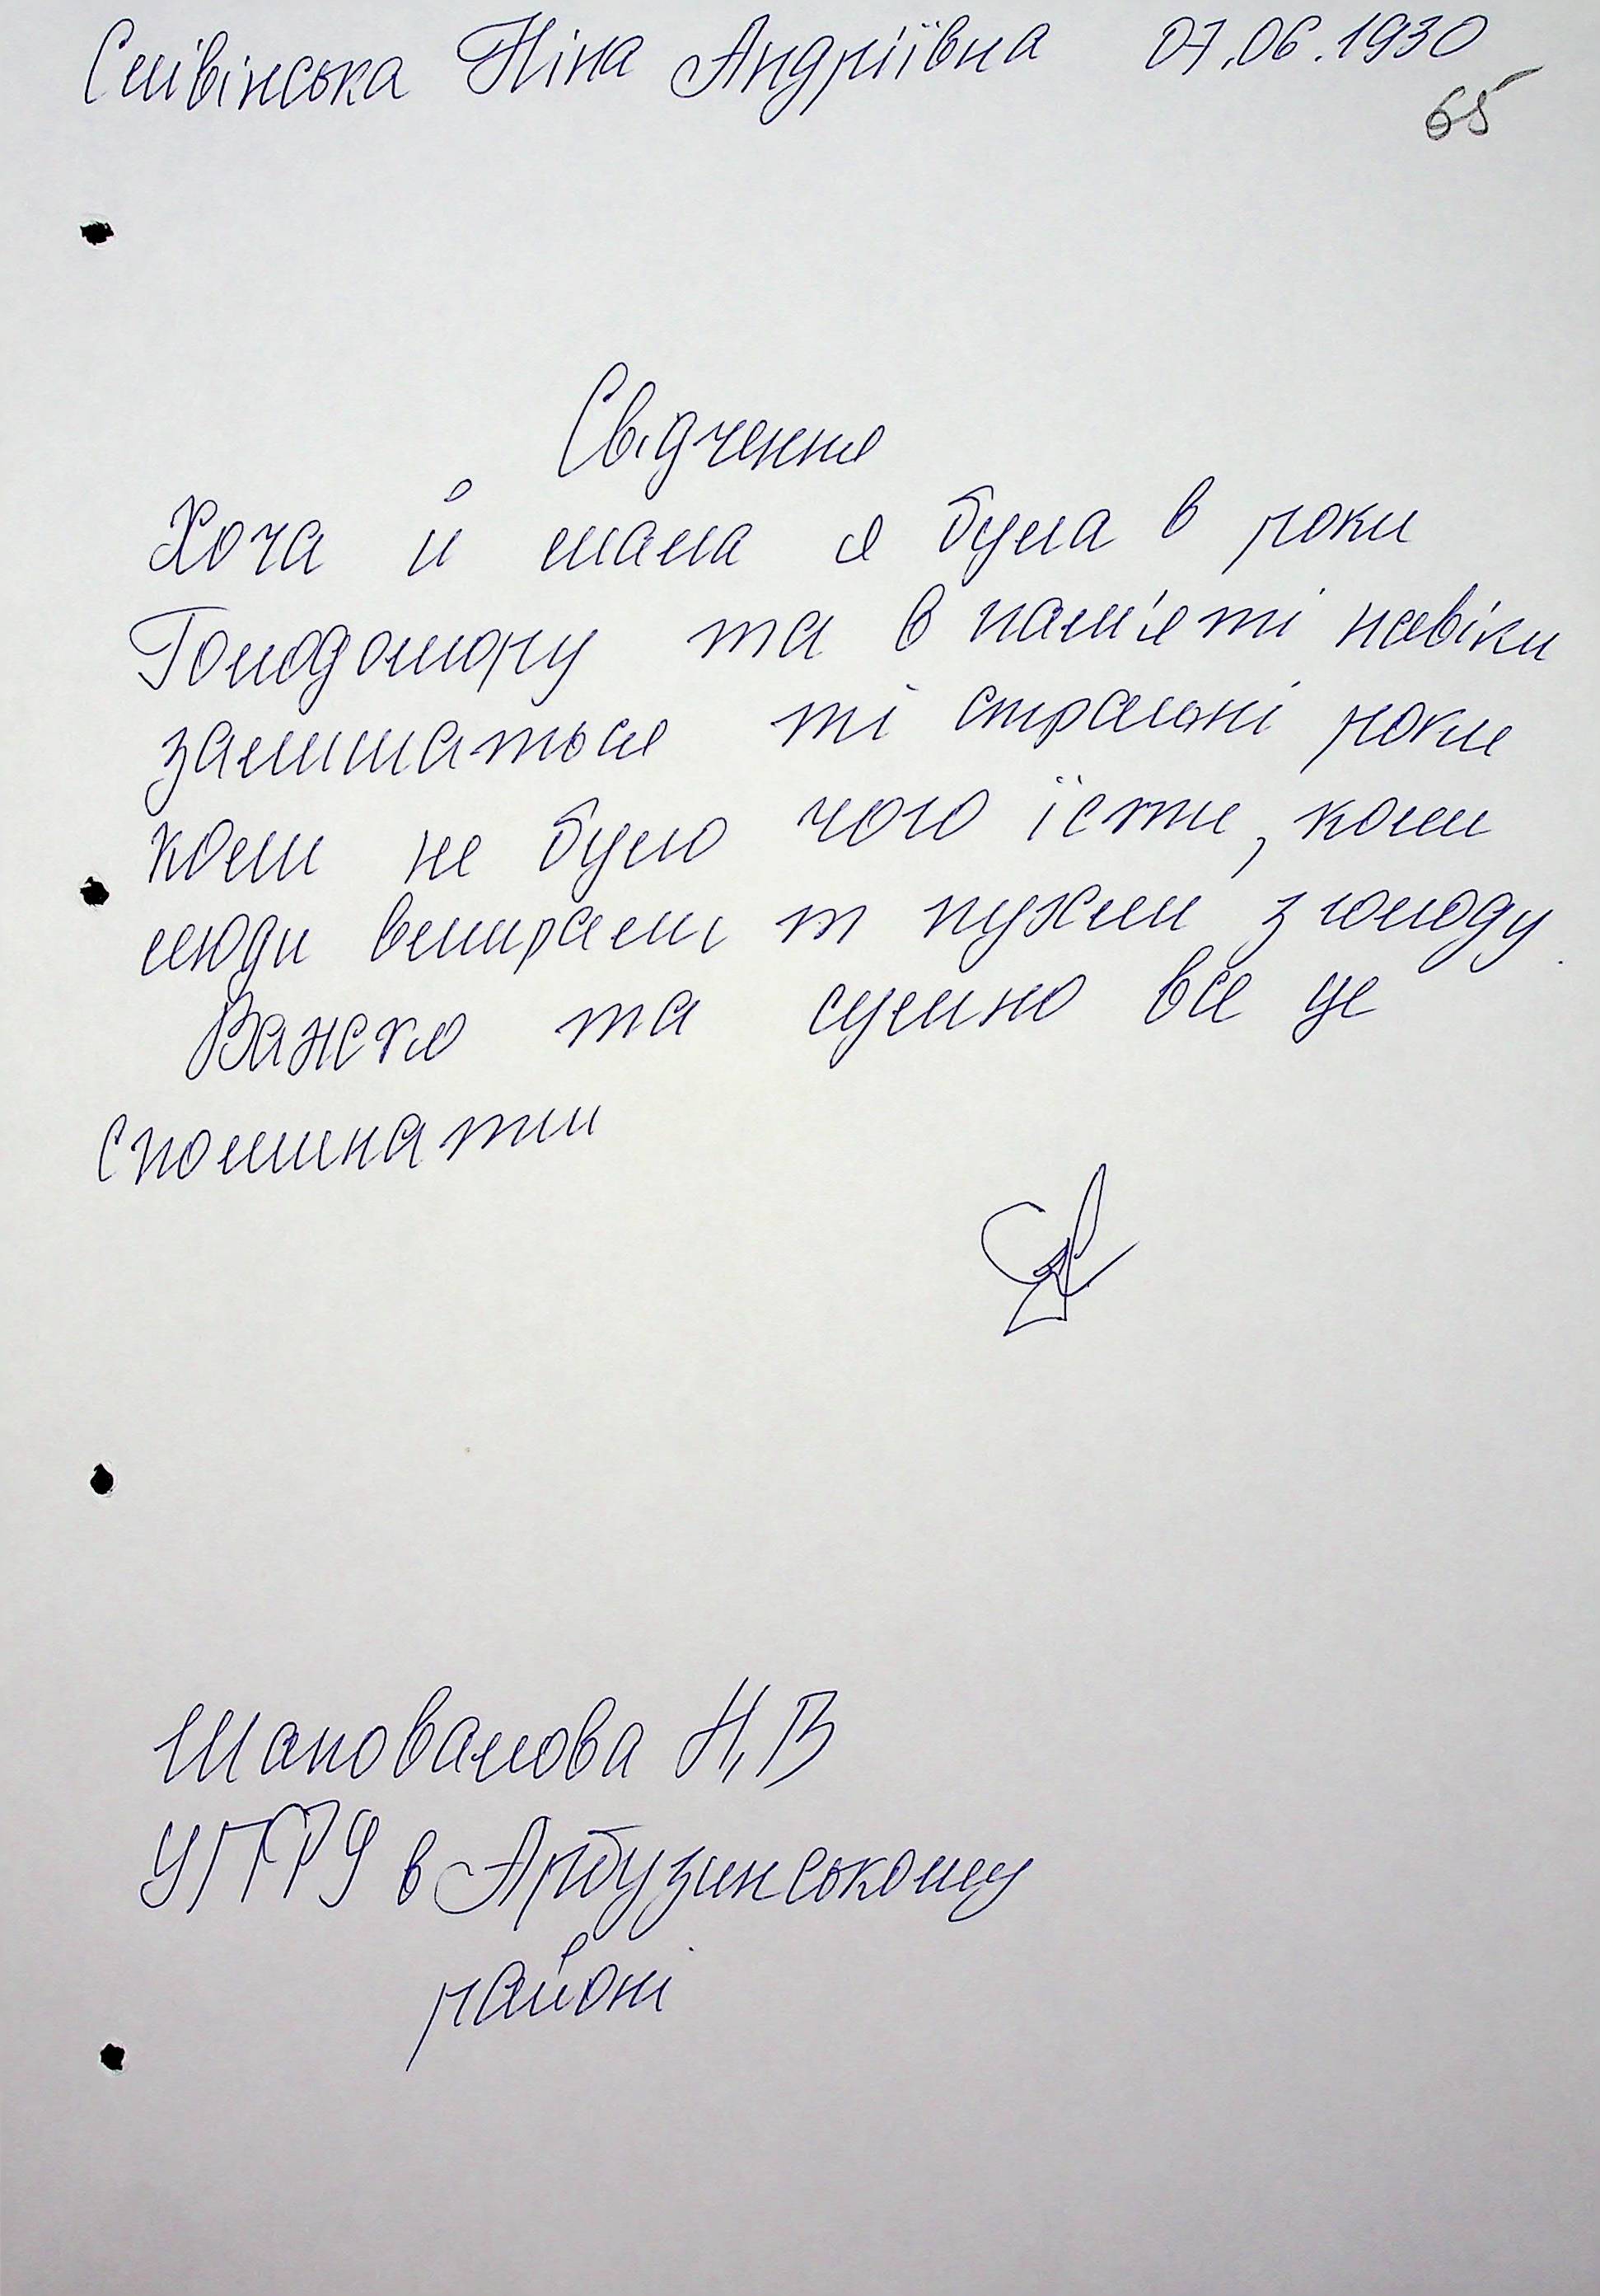 Слівінська Ніна Андріївна 07.06.1930
65
Свідчення
Хоча й мала я була в роки
Голодомору та в пам'яті навіки
залишаться ті страшні роки
коли не було чого їсти, коли
люди вмирали т пухли з голоду.
Важко та сумно все це
споминати
Шаповалова Н,В
УПФУ в Арбузинському
районі